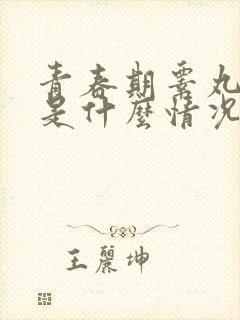 青春期睾丸
是什麼情況
王麗坤